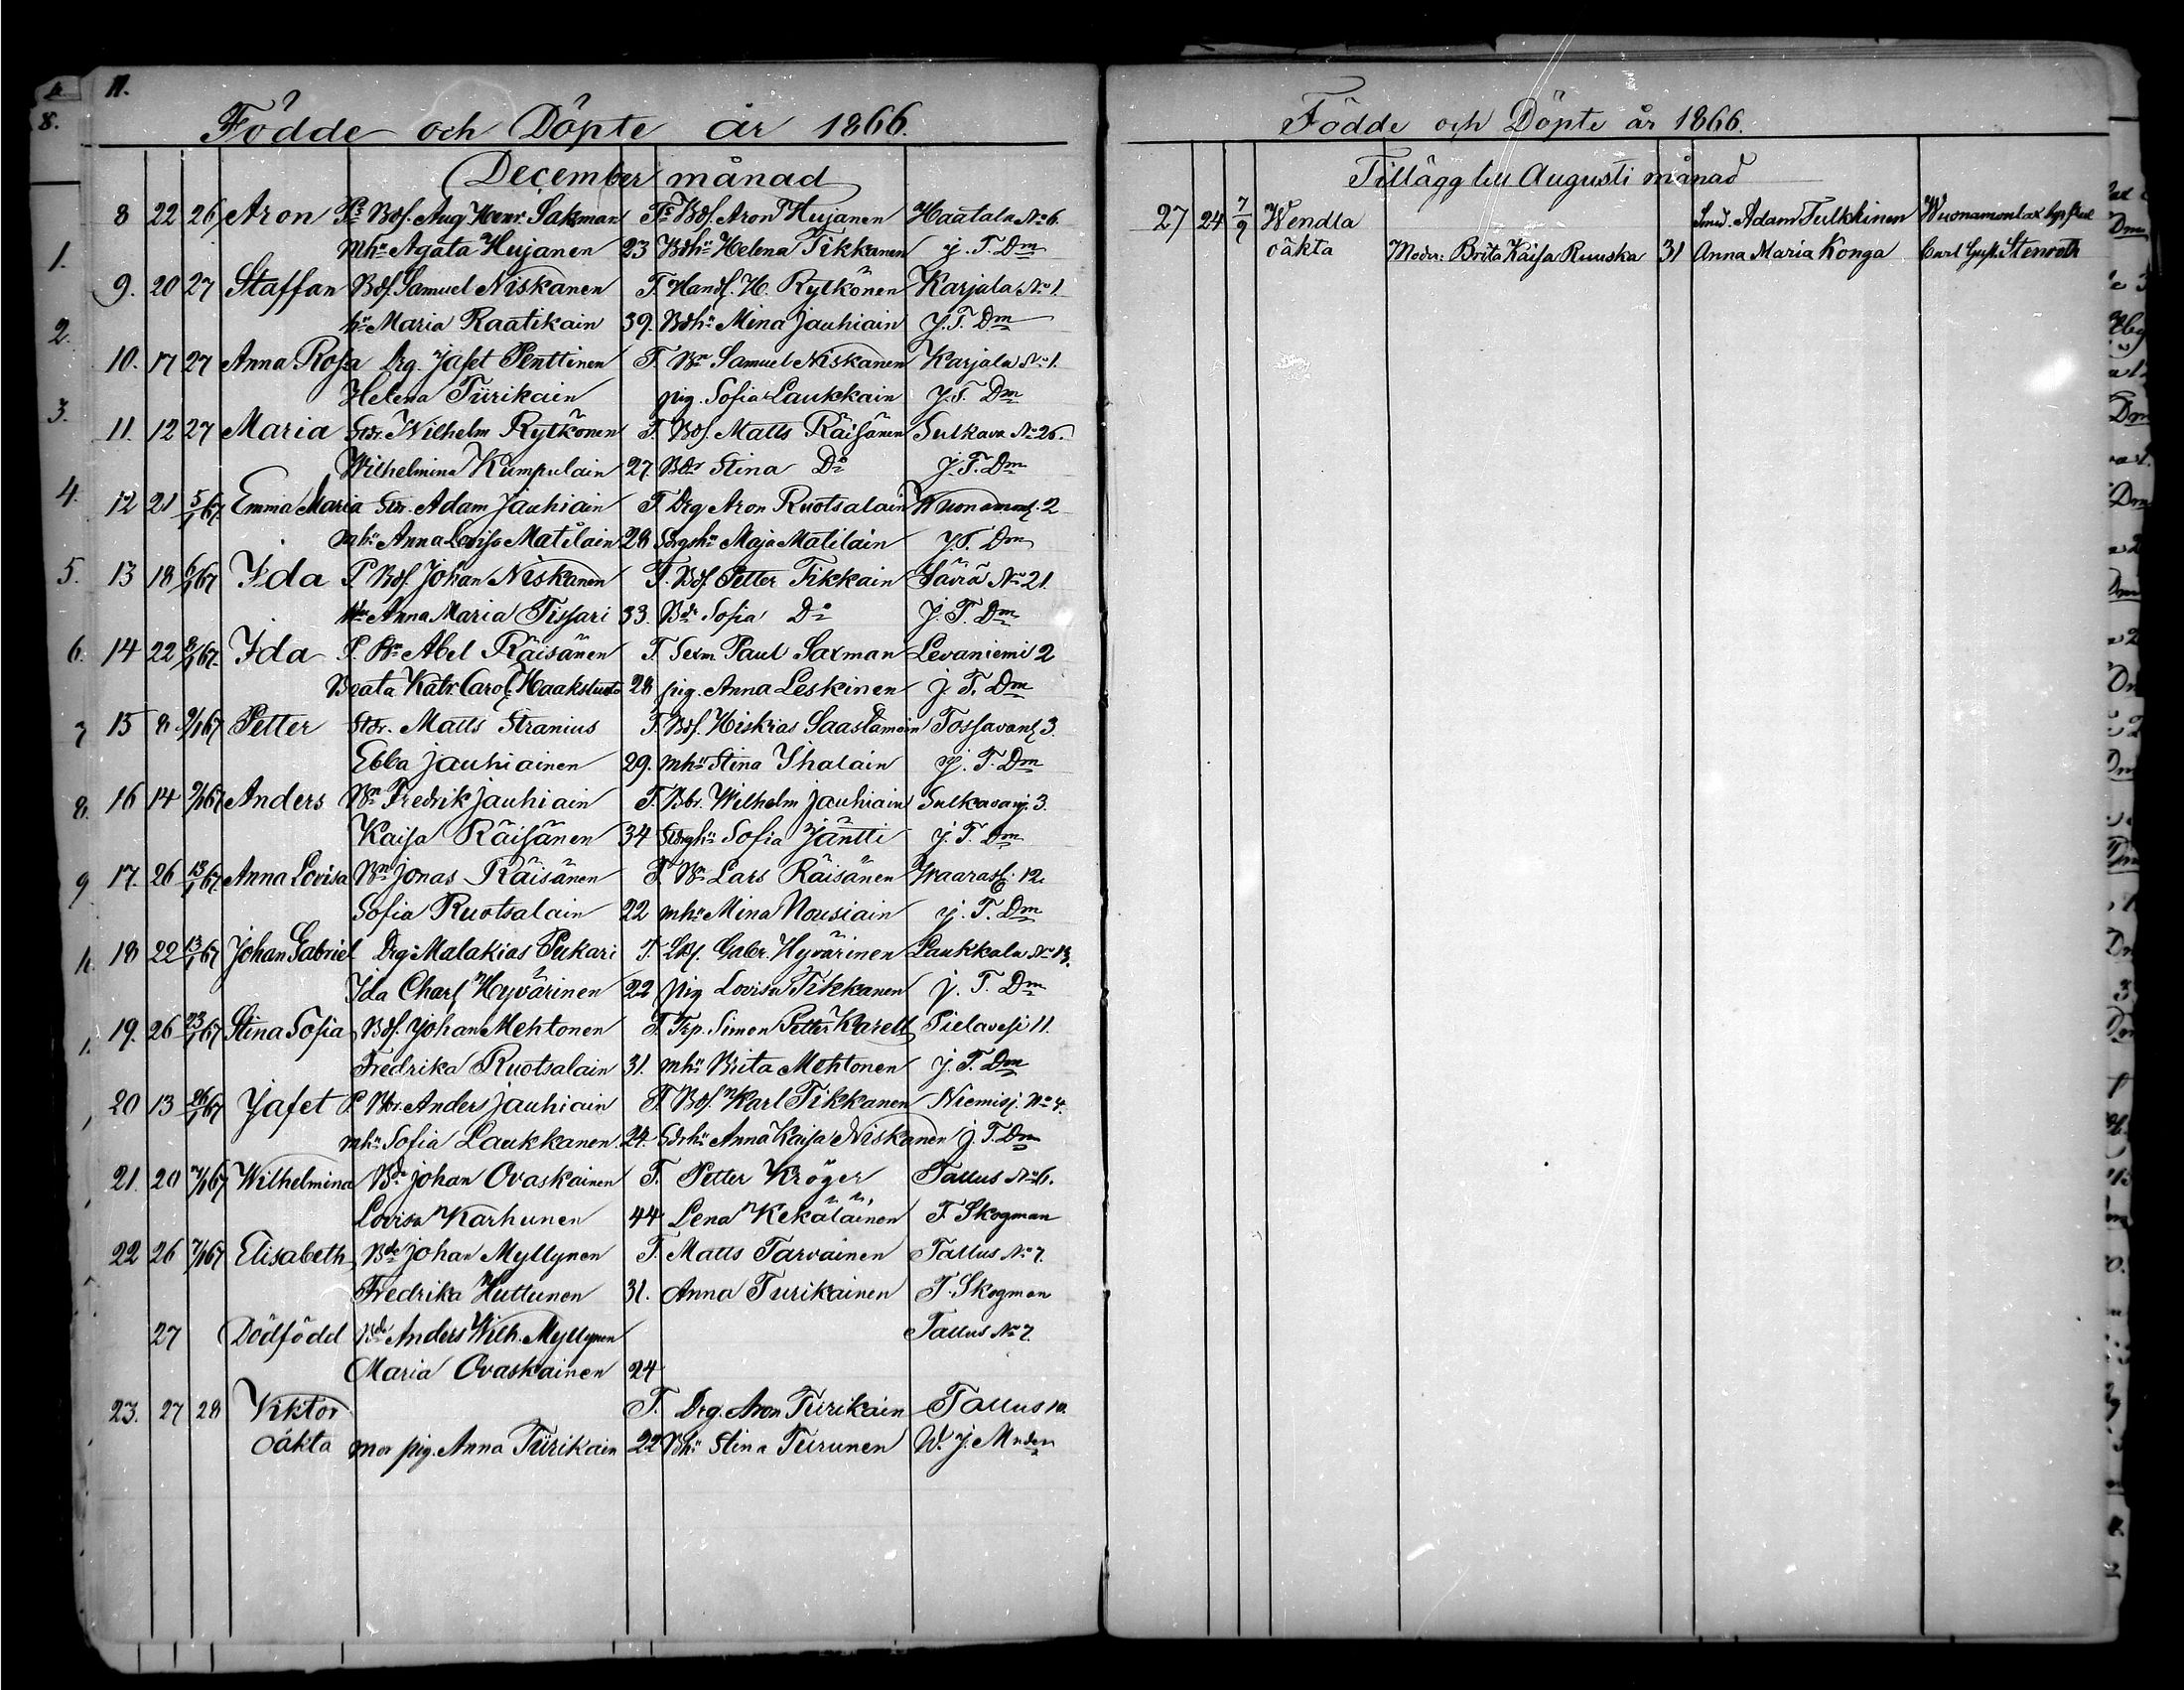 11.
Födde och Döpte år 1866.
December månad
8 22 26 Aron Bds. Aug Henr. Sakman Bds. Aron Hujanen Haatala No 6.
mhu Agata Hujanen 23 Bdhu Helena Tikkanen j. T. Dm
9. 20 27 Staffan Bds. Samuel Niskanen T. Handl. H. Rytkönen Karjala No 1.
hu Maria Raatikain 39. Bdhu Mina Jauhiain J. T. Dm
10. 17 27 Anna Rosa Drg. Jafet Penttinen T. Bn Samuel Niskanen Karjala No 1.
Helena Tiirikain pig. Sofia Laukkain J. T. Dm
11. 12 27 Maria Stdr. Wilhelm Rytkönen T. Bds. Matts Räisänen Sulkava No 26.
Wilhelmina Kumpulain 27. Bdr Stina Do J. T. Dm
12 21 5/1 67. Emma Maria Sdr. Adam Jauhiain T. Drg Aron Ruotsalain 2
mhu Anna Lovisa Matilain 28 Maja Matilain J. T. Dm
13 18 6/1 67 Ida P Bds. Johan Niskanen T. Bds. Petter Tikkain Säviä No 21.
Anna Maria Tissari 33. Bdr Sofia Do J. T. Dm
14 22 67. Ida P. Bn Abel Räisänen T. Sexm. Paul Saxman Levaniemi 2
Beata Katr. Carol. 28 pig. Anna Leskinen j. T. Dm
15 8 67 Petter Stdr. Matts Stranius T. Bds. Hiskias Saastamoin 3.
Ebba Jauhiainen 29. mhu Stina Ihalain j. T. Dm
16 14 67 Anders Bn Fredrik Jauhiain T. Bbr. Wilhelm Jauhiain Sulkavanj. 3.
Kaisa Räisänen 34 Sofia Jäntti j. T. Dm
17. 26 13/1 67 Anna Lovisa Bn Jonas Räisänen T. Bn Lars Räisänen Waarasl. 12.
Sofia Ruotsalain 22 mhu Mina Nousiain j. T. Dm
18 22 13/1 67 Johan Gabriel Drg Malakias Pukari T. Gabr. Hyvärinen Laukkala No 13.
Ida Charl Hyvärinen 22 pig Lovisa Tikkanen j. T. Dm
19. 26 23/1 67 Stina Sofia Bds. Johan Mehtonen T. Trp. Simon Petter Karell Pielavesi 11.
Fredrika Ruotsalain 31. mhu Brita Mehtonen j. T. Dm
20 13 26/1 67 Jafet P. Anders Jauhiain T. Bds. Karl Tikkanen Niemisj. No 4.
mhu Sofia Laukkanen. 24. Anna Kaisa Niskanen j. T. Dm
21. 20 67 Wilhelmina Bde Johan Ovaskainen T. Petter Kröger Tallus No 6.
Lovisa Karhunen 44 Lena Kekäläinen T. Skogman
22 26 67 Elisabeth Bde Johan Myllynen T. Matts Tarvainen Tallus No 7.
Fredrika Huttunen 31. Anna Turikainen T. Skogman
27 Dödfödd Bde Anders Wilh. Myllynen Tallus No 7.
Maria Ovaskainen 24
23. 27 28 Viktor T. Drg. Aron Tiirikain Tallus 10.
oäkta mor pig. Anna Tiirikain 22 Bdhu Stina Teirunen W. J.
Födde och Döpte år 1866.
Tillägg till Augusti månad
27 24 7/9 Wendla Smd. Adam Tulkkinen
oäkta Moder: Brita Kaisa Ruuska 31 Anna Maria Konga Carl Gust. Stenroth